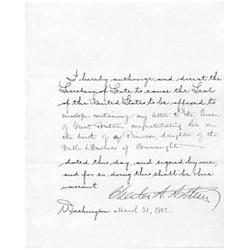 I hereby authorize and direct the
Secretary of State to cause the Seal
of the United States to be affixed to
envelope containing my letter to the Queen
of Great Britain congratulating her on
the birth of a Princess, daughter of the
Duke & Duchess of Connaught
dated this day, and signed by me,
and for so doing this shall be his
warrant.
Chester A. Arthur
Washington March 31, 1882.